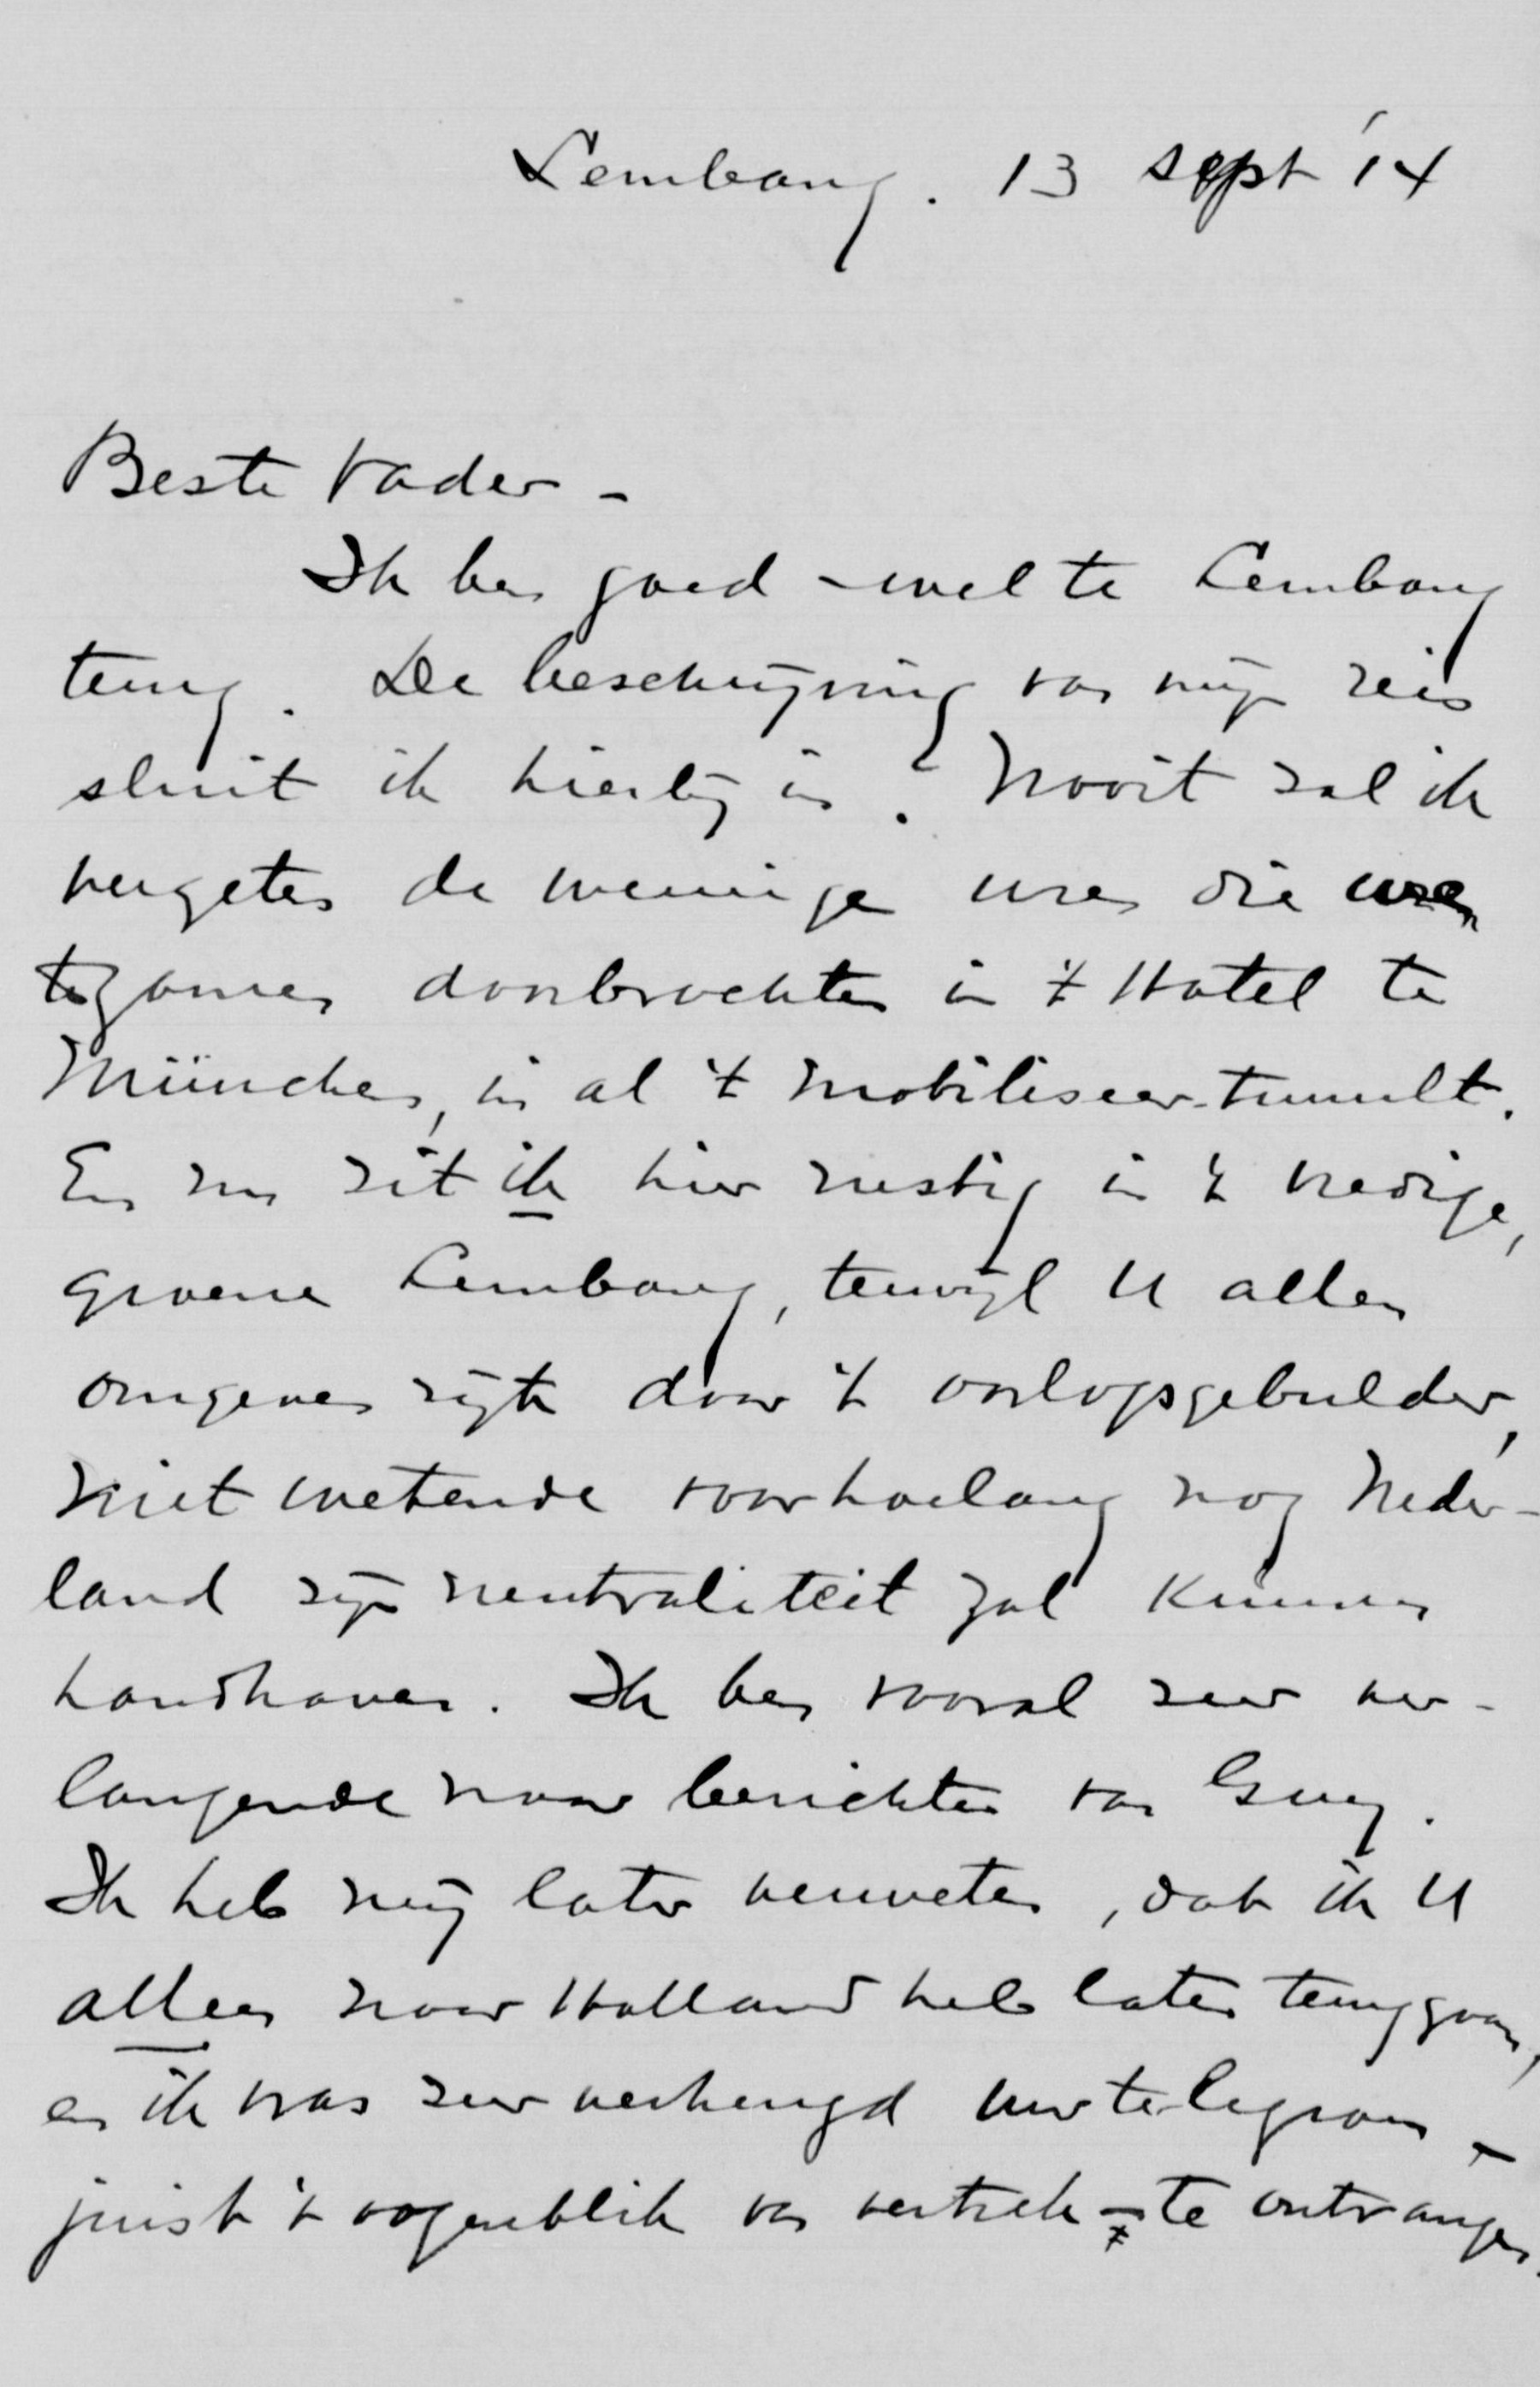 Lembang. 13 sept '14
Beste Vader -
Ik ben goed & wel te Lembang
terug. De beschrijving van mijn reis
sluit ik hierbij in. Nooit zal ik
vergeten de weinige uren die we
tezamen doorbrachten in 't Hotel te
München, in al 't mobiliseer-tumult.
En nu zit ik hier rustig in 't vredige,
groene Lembang, terwijl U allen
omgeven zijt door 't oorlogsgebulder,
niet wetende voor hoelang nog Neder-
land zijn neutraliteit zal kunnen
handhaven. Ik ben vooral zeer ver-
langende naar berichten van Guy.
Ik heb mij later verweten, dat ik U
alleen naar Holland heb laten teruggaan,
en ik was zeer verheugd uw telegram -
juist 't oogenblik van vertrek - te ontvangen.